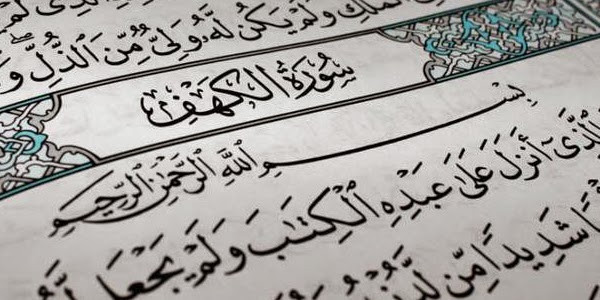 ٱلْمُلْكِ وَلَمْ يَكُن لَّهُۥ وَلِىٌّ مِّنَ ٱلذُّلِّ
سُورَةُ الْكَهْفِ
بِسْمِ ٱللَّهِ ٱلرَّحْمَٰنِ ٱلرَّحِيمِ
ٱلَّذِىٓ أَنزَلَ عَلَىٰ عَبْدِهِ ٱلْكِتَٰبَ وَلَمْ يَجْعَل
شَدِيدًا مِّن